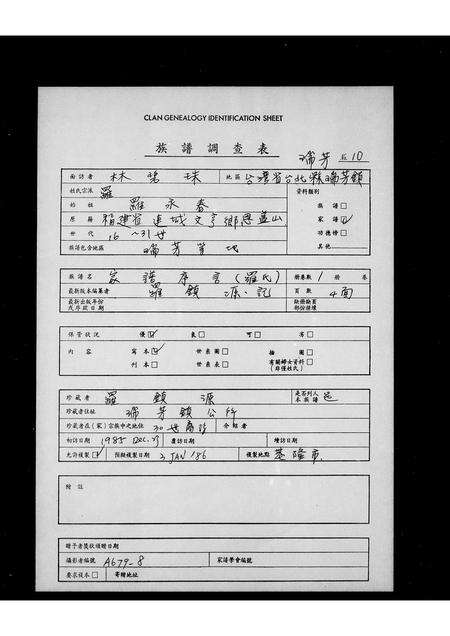 CLAN GENEALOGY IDENTIFICATION SHEET
族譜調查表
瑞芳 10
面訪者 林 珠 地區 台灣省台北縣瑞芳鎮
姓氏宗派 羅 資料類別
始祖 羅永春 族譜□
原籍 福建省連城文亨鄉 山 家譜☑
世代 16~31世 功德榜□
族譜包含地區 瑞芳等地 其他
族譜名 家譜序言(羅氏) 冊卷數 1 冊 卷
最新版本編纂者 羅鎮源 記 頁數 4面
最新出版年份或序跋日期
保管狀況 優☑ 良□ 可□ 劣□
內容 寫本☑ 世系圖□ 插圖□
刊本□ 世系表□ 有關婦女資料□
(非僅姓氏)
珍藏者 羅鎮源 是否列入本族譜 是
珍藏者住址 瑞芳鎮公所
珍藏者在(家)宗族中之地位 30世裔孫 介紹者
初訪日期 1985 DEC. 覆訪日期 續訪日期
允許複製☑ 預擬複製日期 2 JAN 186 複製地點 基隆市
附註
贈予者獎狀頒贈日期
攝影者編號 A679-8 家譜學會編號
要求複本□ 寄贈地址